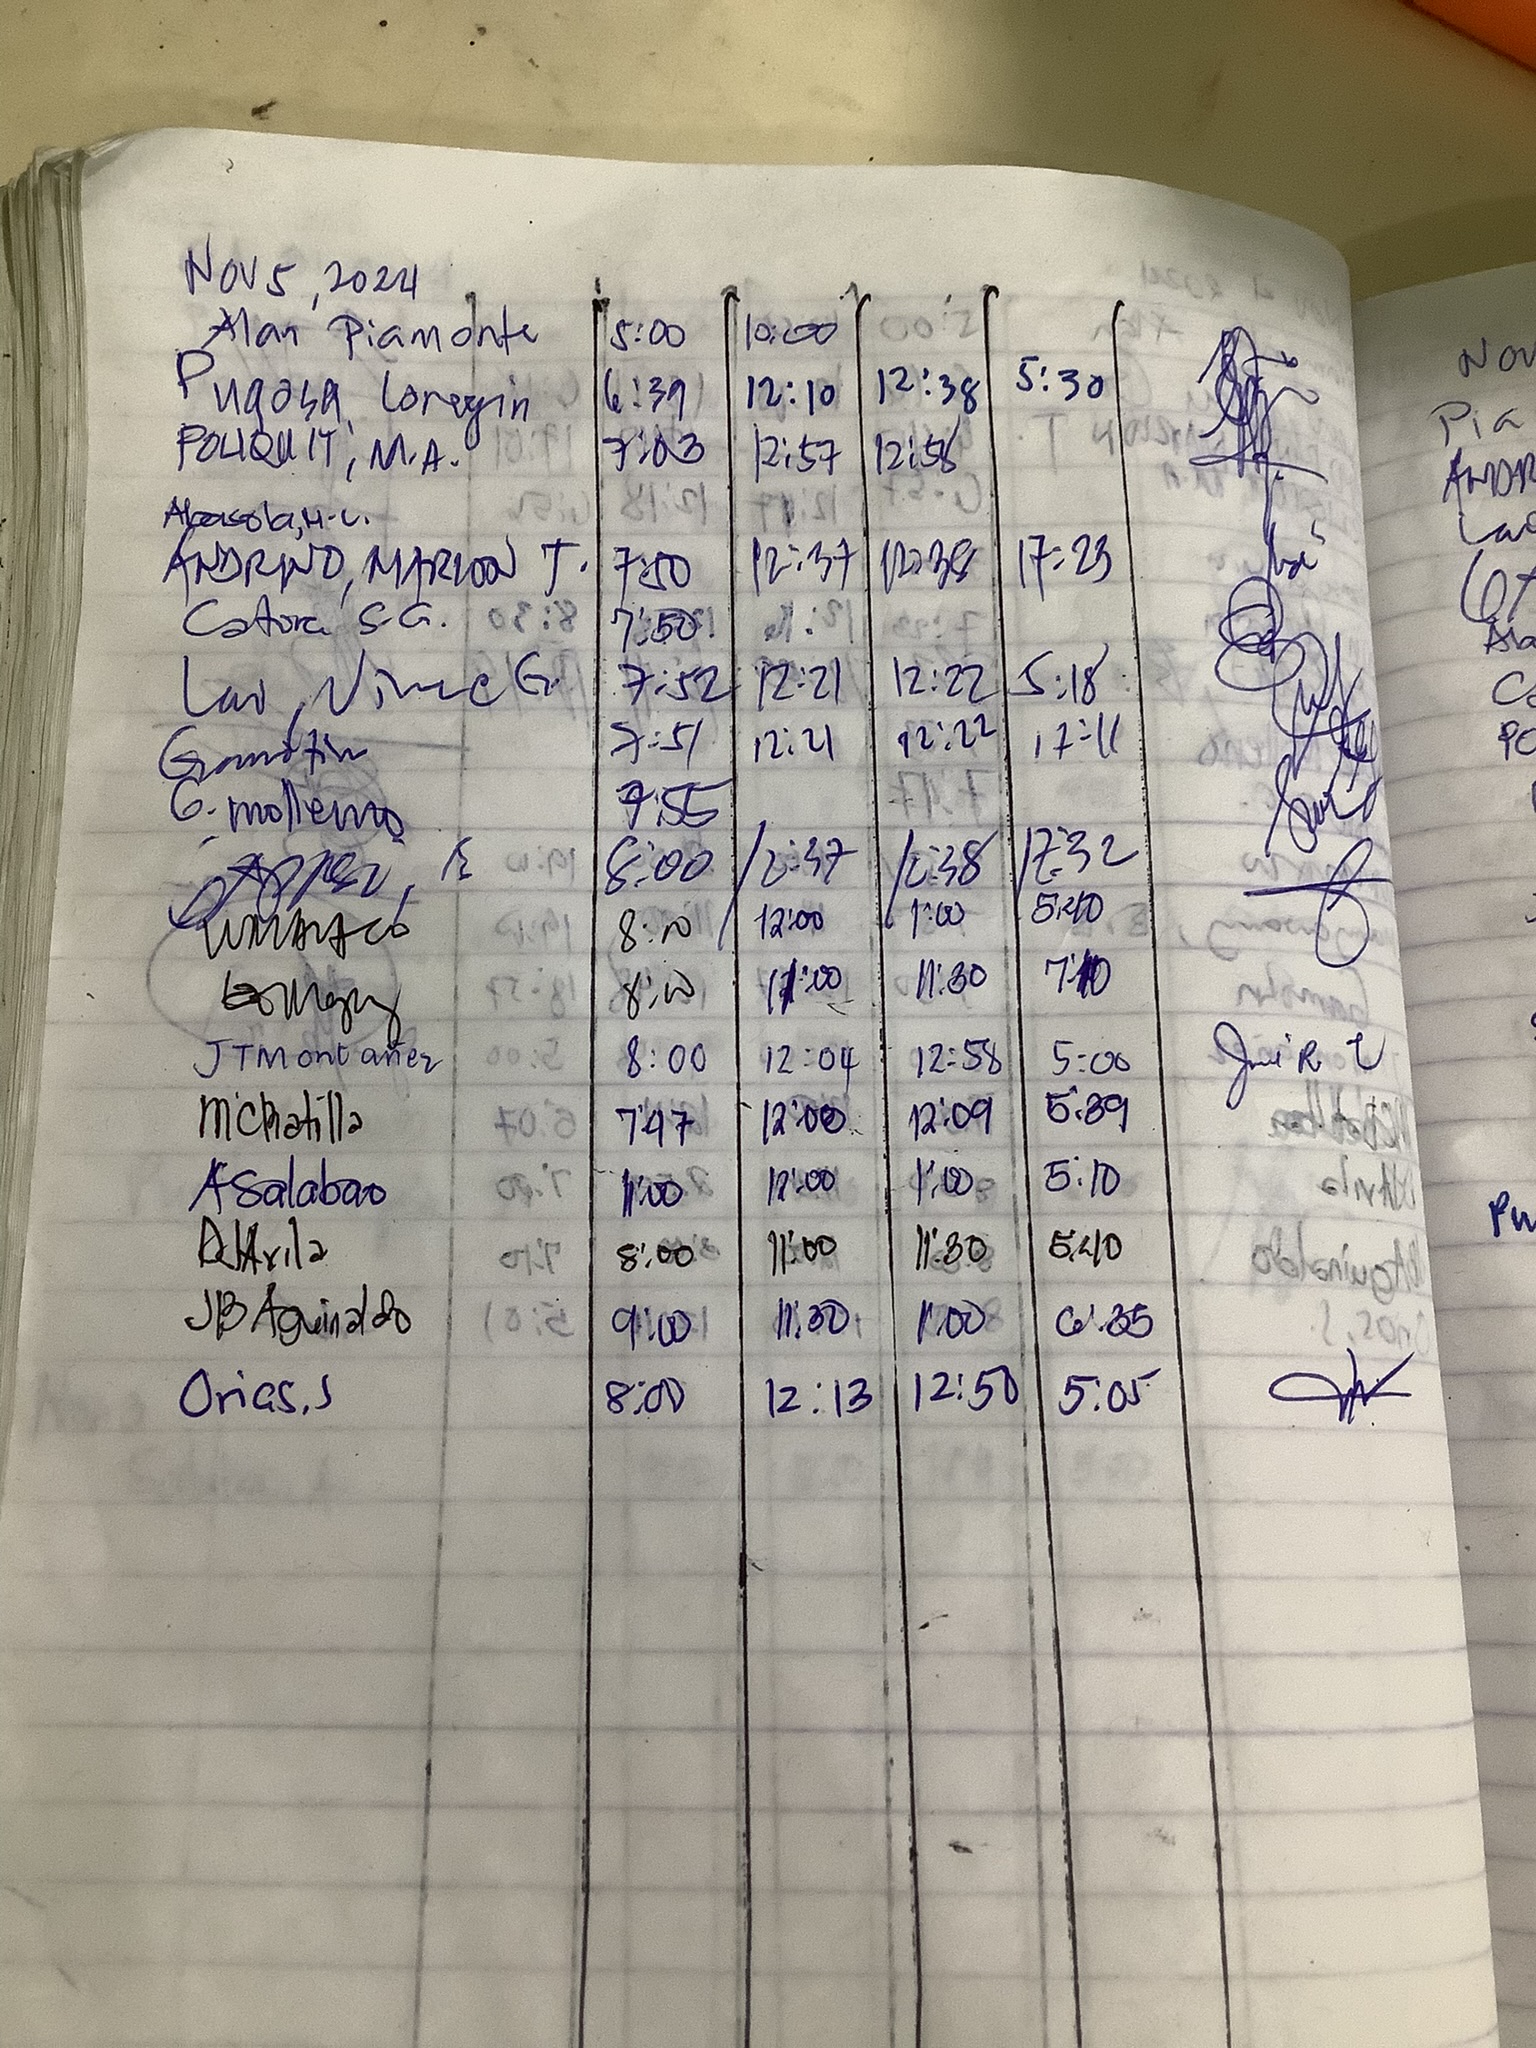 Nov 5, 2024
Alan Piamonte 5:00 10:00
Pugosa, Loregin 6:39 12:10 12:38 5:30
POLIQUIT, M.A. 7:03 12:57 12:58
Abasola, H.C.
ANDRINO, MARLOON T. 7:50 12:37 12:38 17:23
Catura S.G. 7:50
Lao, Vince G. 7:52 12:21 12:22 5:18
7:51 12:21 12:22 17:11
G. mollemo 7:55
8:00 12:37 12:38 17:32
8:00 12:00 1:00 5:40
8:00 11:30
JT Montañez 8:00 12:04 12:58 5:00
MCRatilla 7:47 12:00 12:09 5:39
ASalabao 11:00 12:00 1:00 5:10
DJAvila 8:00 11:00 11:30 5:40
JB Aguinaldo 9:00 11:30 1:00 6:35
Orias, J 8:00 12:13 12:50 5:05
NOV
Pia
ANDR
Lao